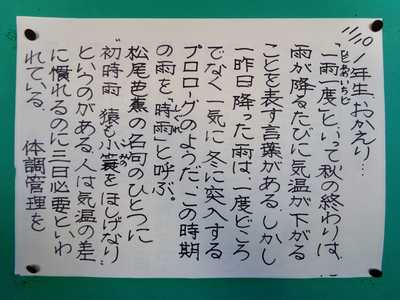 1年生、おかえり…
「一雨一度」といって秋の終わりは、
雨が降るたびに気温が下がる
ことを表す言葉がある。しかし
一昨日降った雨は、一度どころ
でなく一気に冬に突入する
プロローグのようだ。この時期
の雨を「時雨」と呼ぶ。
松尾芭蕉の名句のひとつに
"初時雨 猿も小簑をほしげなり"
というのがある。人は気温の差
に慣れるのに三日必要といわ
れている。 体調管理を